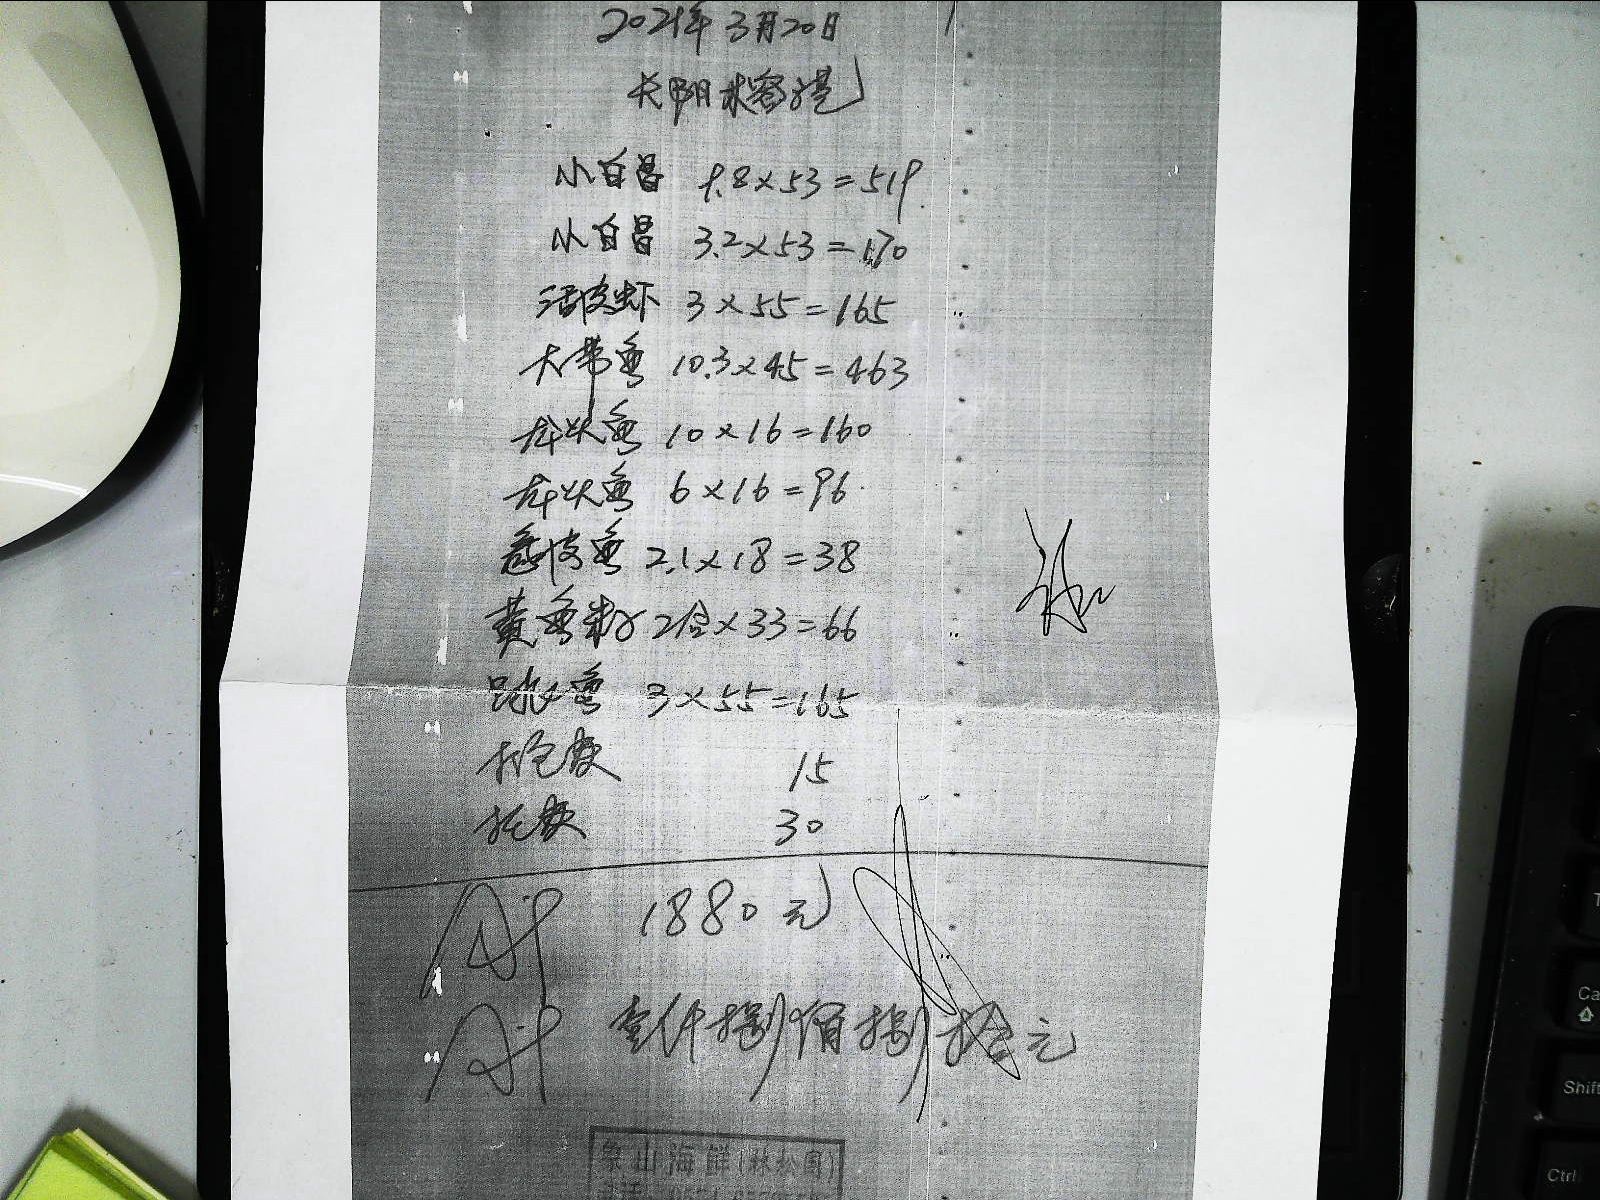 2021年3月20日
小白昌 9.8×53=519
小白昌 3.2×53=170
活皮虾 3×55=165
大带鱼 10.3×45=463
龙头鱼 10×16=160
龙头鱼 6×16=96
皮鱼 2.1×18=38
黄鱼 2合×33=66
跳鱼 3×55=165
15
托费 30
1880元
壹仟捌佰捌拾元
象山海鲜(林松国)
Ctrl
Shift
Ca